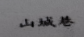 山城巷